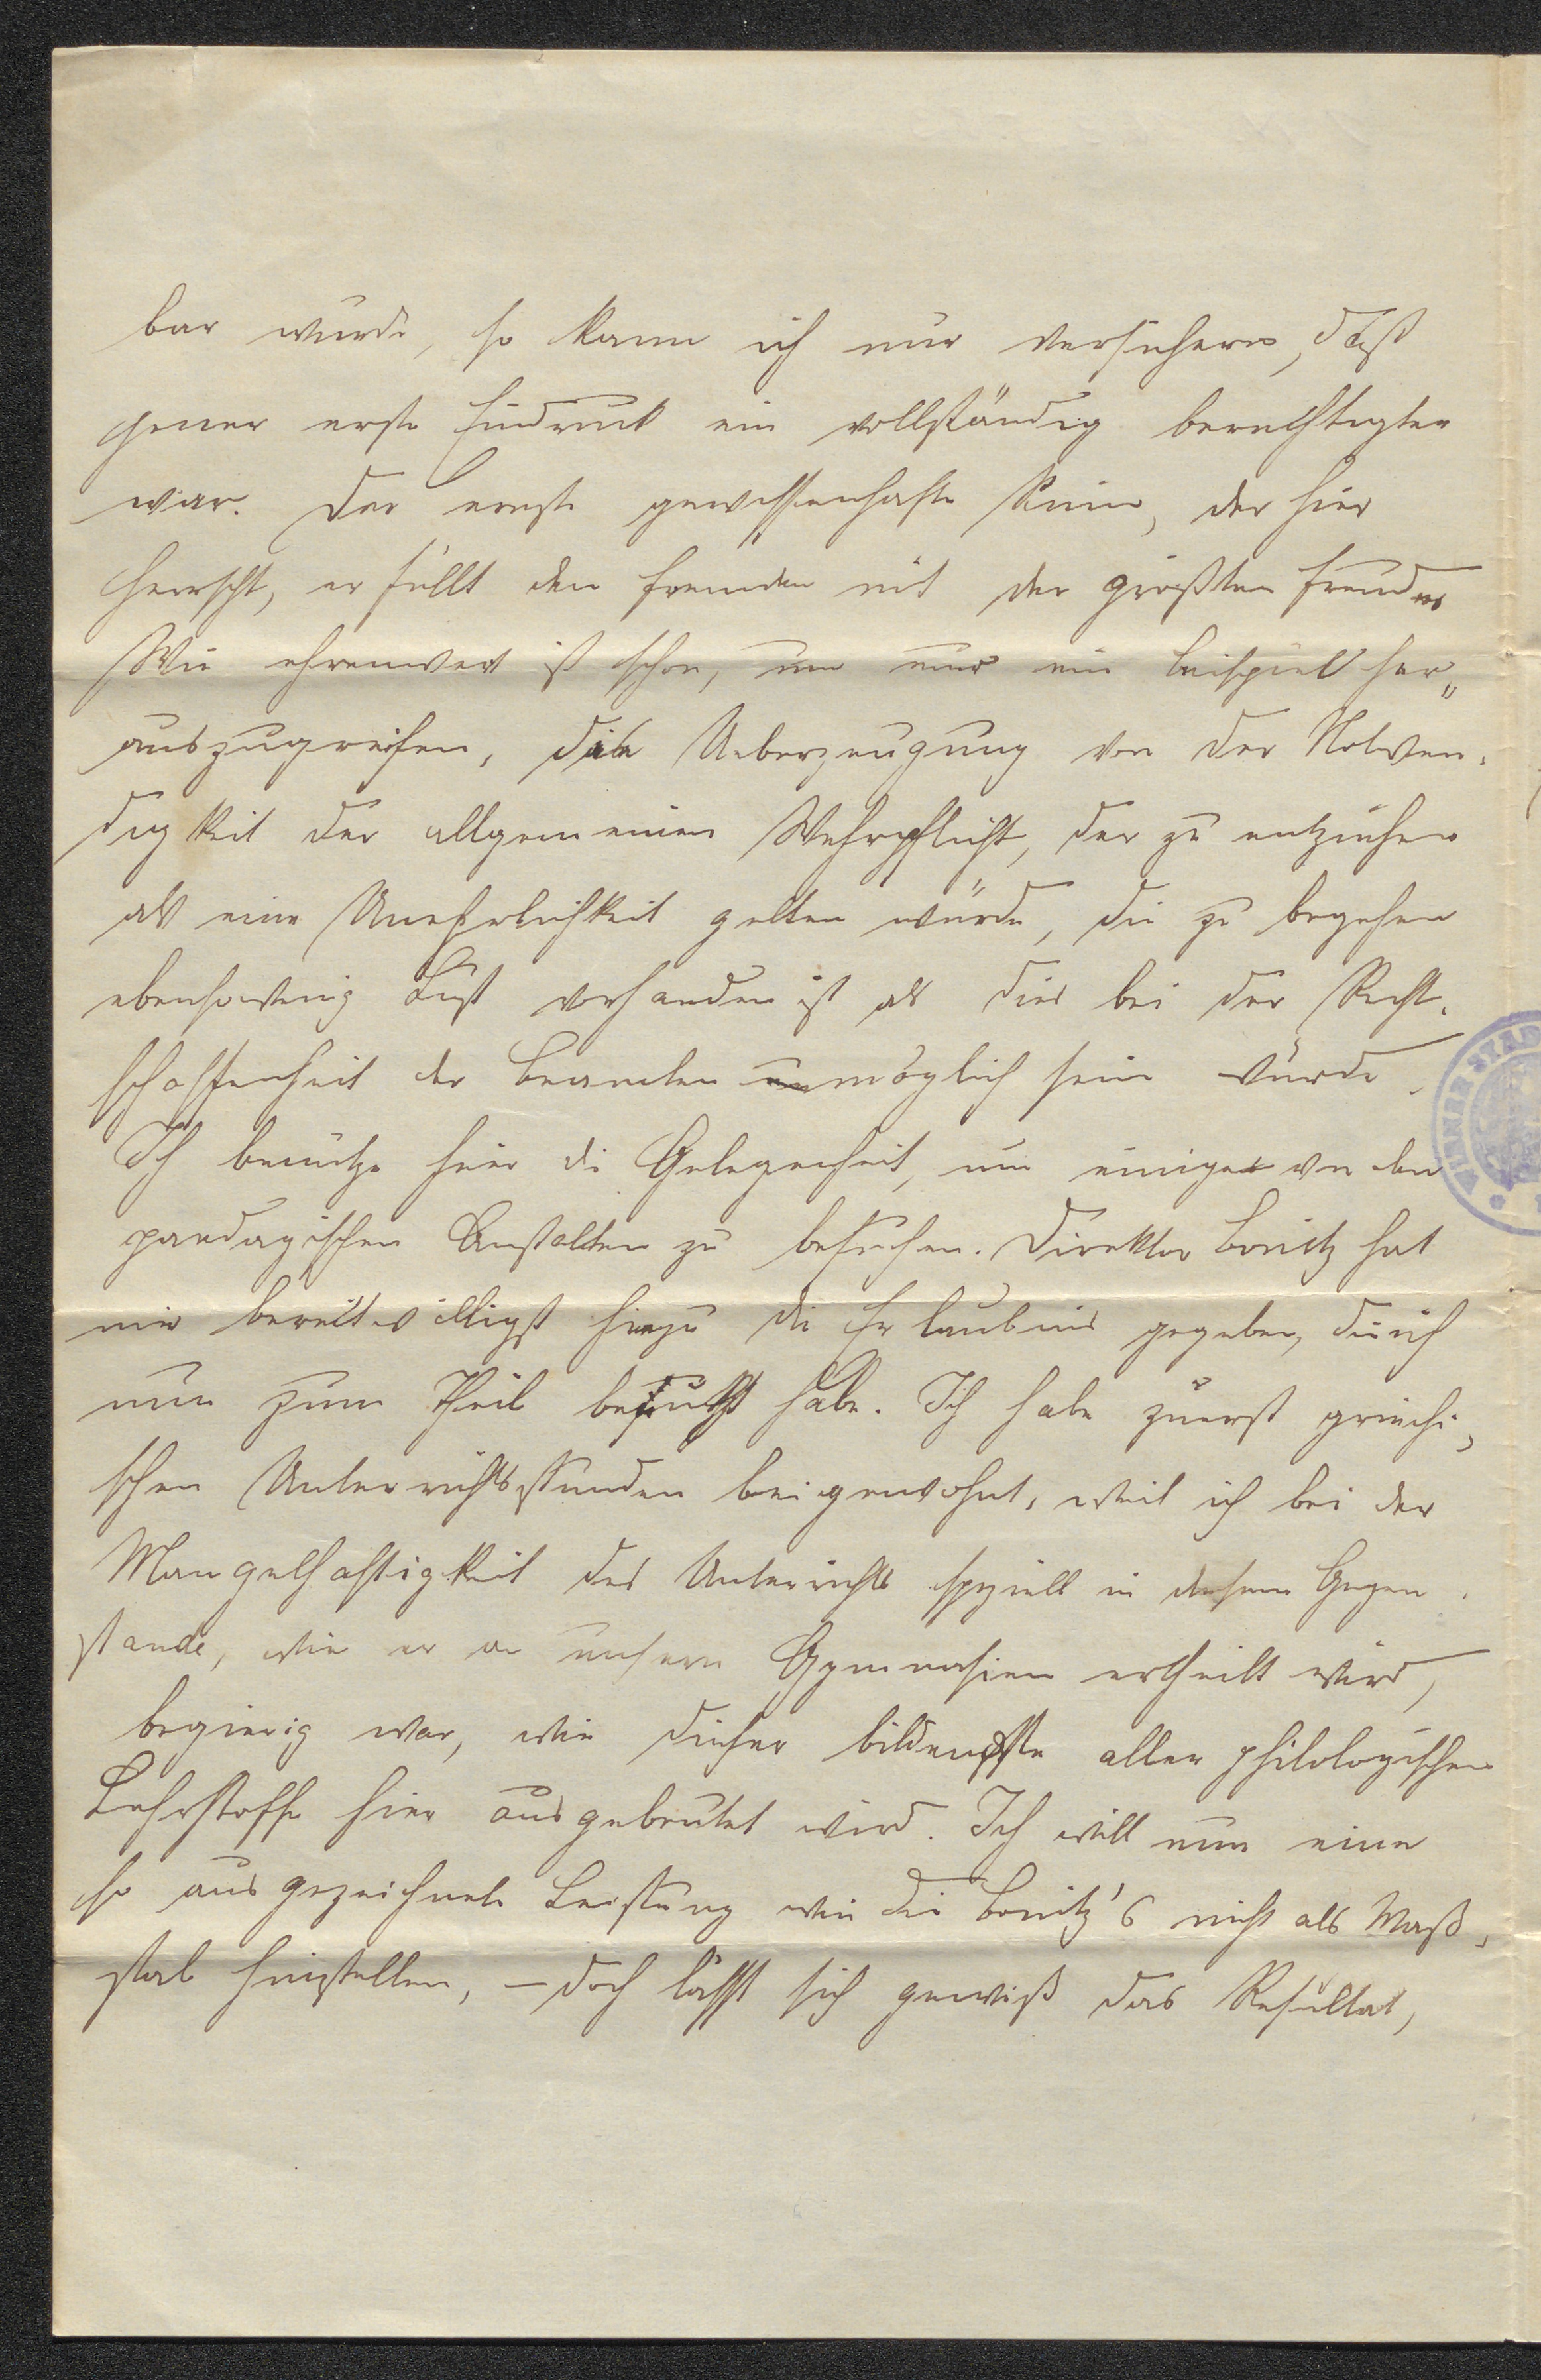 bar wurde, so kann ich nur versichern, daß
jener erste Eindruck ein vollständig berechtigter
war. Der ernste gewissenhafte Sinn, der hier
herrscht, erfüllt den Fremden mit der größten Freude.
Wie ehrenwert ist schon, um nur ein Beispiel her„
auszugreifen, die Ueberzeugung von der Notwen-
digkeit der allgemeinen Wehrpflicht, der zu entziehen
als eine Unehrlichkeit gelten würde, die zu begehen
ebensowenig Lust vorhanden ist als dies bei der Recht-
schaffenheit der Beamten unmöglich sein würde.
Ich benütze hier die Gelegenheit, um einige von den
paedagischen Anstalten zu besuchen. Direktor Bonitz hat
mir bereitwilligst hiezu die Erlaubnis gegeben, die ich
nun zum Theil besucht habe. Ich habe zuerst griechi-
schen Unterrichtsstunden beigewohnt, weil ich bei der
Mangelhaftigkeit des Unterrichts speziell in diesem Gegen-
stande, wie er an unsern Gymnasien ertheilt wird,
begierig war, wie dieser bildendste aller philologischen
Lehrstoffe hier ausgebeutet wird. Ich will nun eine
so ausgezeichnete Leistung wie die Bonitz's nicht als Maß-
stab hinstellen, – doch läßt sich gewiß das Resultat,